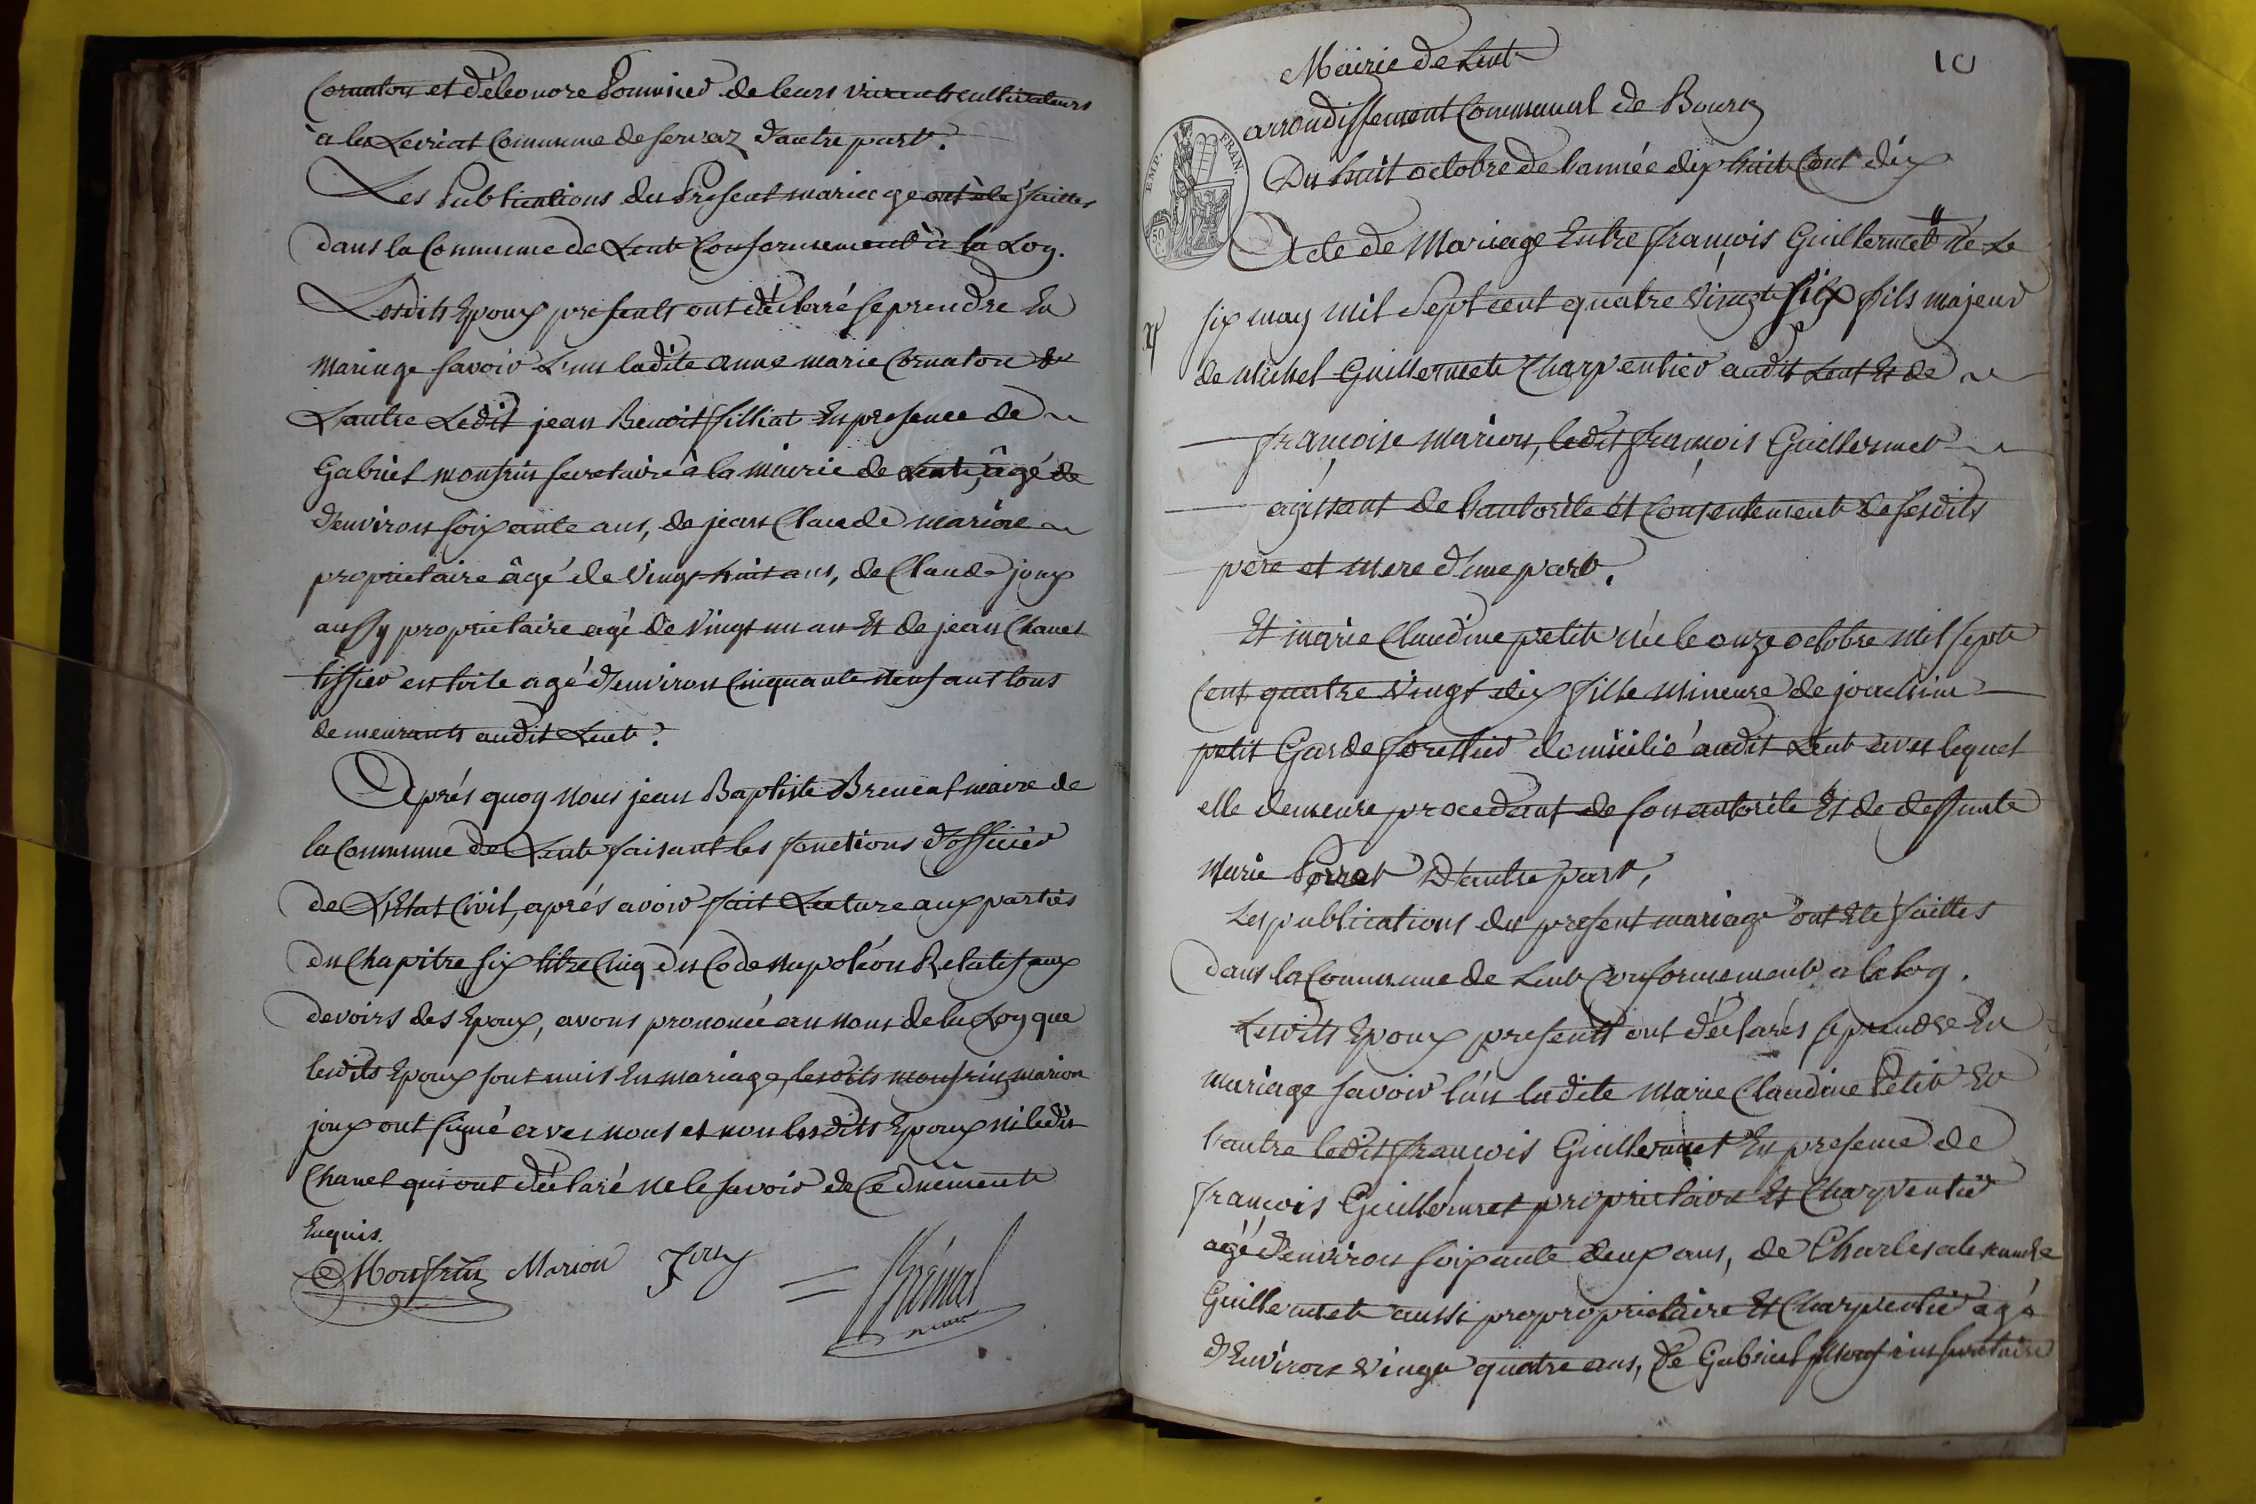 Cornaton et d'éléonore Pommier de leurs vivants cultivateurs
à la Leviat Commune de servaz d'autre part.
Les Publications du Present mariage ont été faittes
dans la Commune de Lent Conformement à la Loy.
Lesdits Epoux presents ont déclaré se prendre En
Mariage savoir L'un ladite anne marie Cornaton et
L'autre Ledit jean Benoit filliat En presence de
Gabriel monfrin secretaire à la mairie de Lent, âgé de
d'environ soixante ans, de jean Claude marion
proprietaire âgé de Vingt huit ans, de Claude joux
aussy proprietaire agé de Vingt un an Et de jean Chanel
tissier en toile agé d'environ Cinquante neuf ans tous
demeurants audit Lent.
Aprés quoy Nous jean Baptiste Brenal maire de
la Commune de Lent faisant les fonctions d'officier
de L'Etat Civil, aprés avoir fait Lecture aux parties
du Chapitre six titre Cinq du Code Napoléon Relatif aux
devoirs des Epoux, avons prononcé au nom de la Loy que
lesdits Epoux sont unis En mariage, lesdits monfrin, marion
joux ont signé avec nous et non lesdits Epoux ni ledit
Chanel qui ont déclaré ne le savoir de Ce duement
Enquis.
Monfrin Marion Joux
maire
10
Mairie de Lent
arrondissement Communal de Bourg
EMP. FRAN.
Du huit octobre de l'année dix huit Cent dix
Acte de Mariage Entre françois Guillermet né Le
six may mil sept cent quatre Vingt six fils majeur
de Michel Guillermet Charpentier audit Lent Et de
françoise marion, ledit françois Guillermet
agissant de l'autorité et Consentement de sesdits
pere et mere d'une part.
Et marie Claudine petit née le onze octobre mil sept
Cent quatre Vingt dix fille mineure de joachim
petit Garde forestier domicilié audit Lent avec lequel
elle demeure procedant de son autorité Et de deffunte
Marie Porret D'autre part,
Les publications du present mariage ont Eté faittes
dans la Commune de Lent Conformement a la loy.
Lesdits Epoux presents ont déclarés se prendre En
mariage savoir l'un ladite Marie Claudine Petit Et
l'autre ledit françois Guillermet En presence de
françois Guillermet proprietaire Et Charpentier
agé d'environ soixante deux ans, de Charles alexandre
Guillermet aussi propropriétaire Et Charpentier agé
d'Environ Vingt quatre ans, de Gabriel Monfrin secretaire